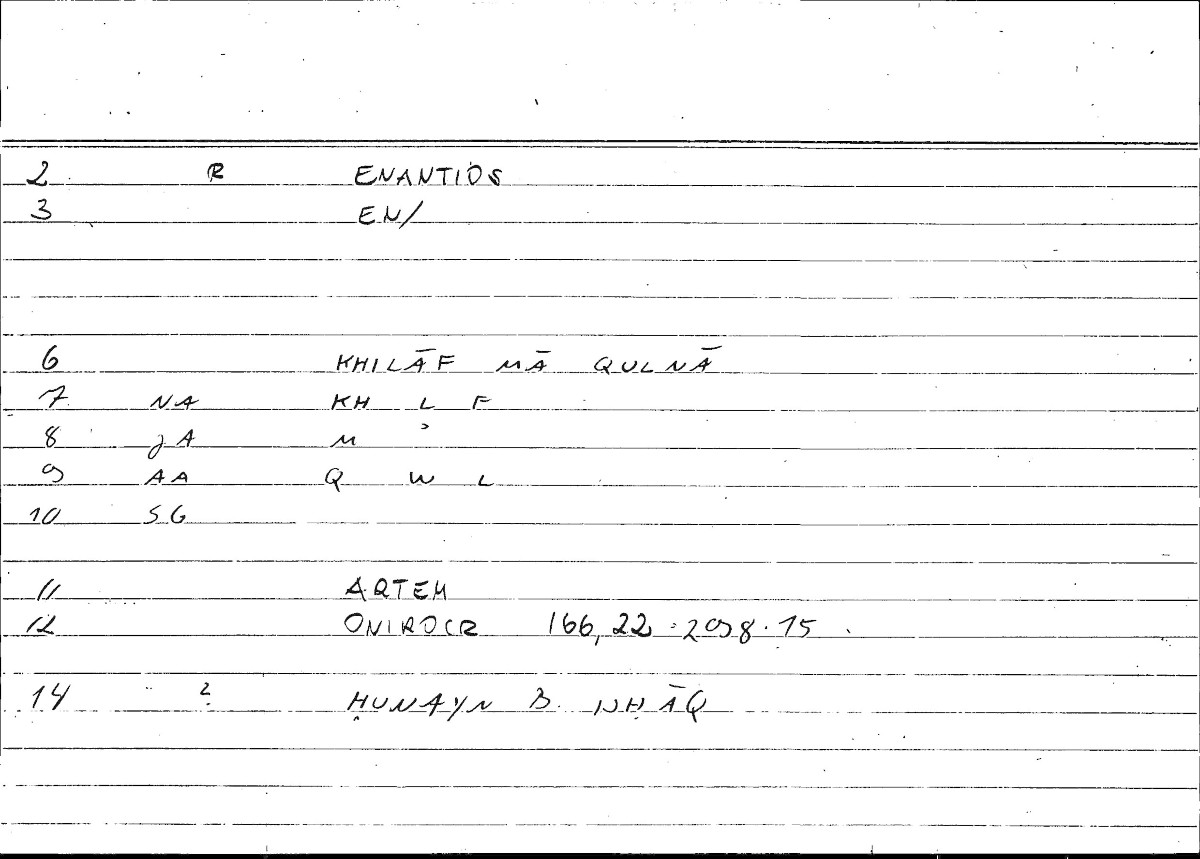 2 R ENANTIOS
3 EN/
6 KHILĀF MĀ QULNĀ
7 NA KH L F
8 JA M ʾ
9 AA Q W L
10 SG
11 ARTEM
12 ONIROCR 166,22 · 298 · 15 .
14 2 ḤUNAYN B. ISḤĀQ